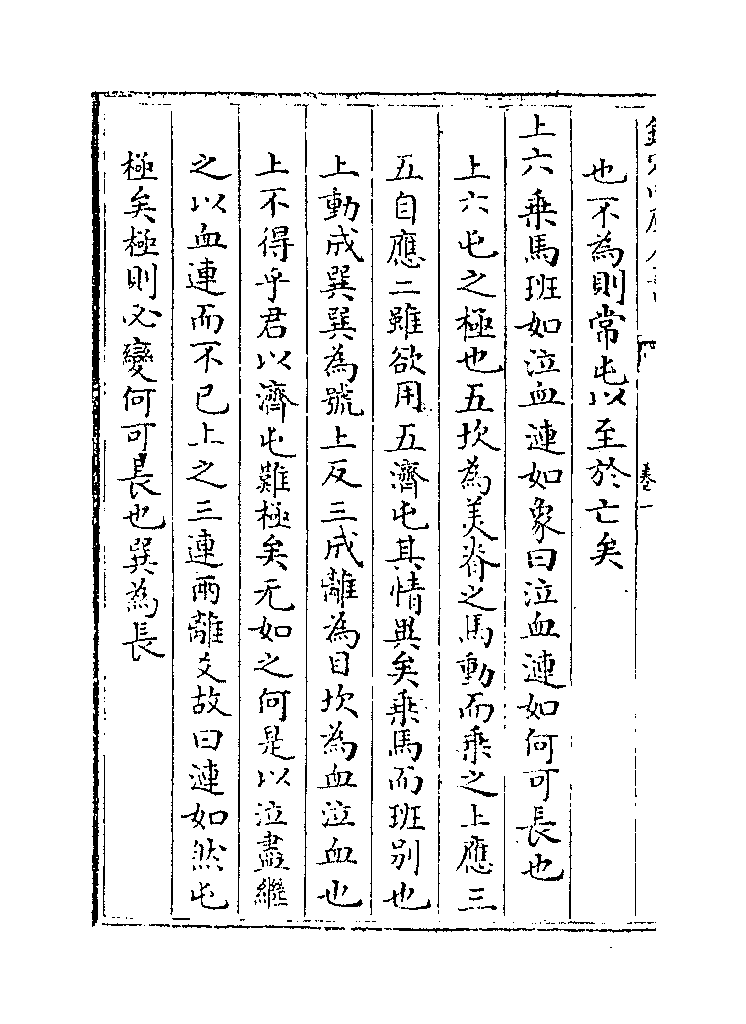 卷一
也不為則常屯以至於亡矣
上六乘馬班如泣血漣如象曰泣血漣如何可長也
上六屯之極也五坎為美脊之馬動而乘之上應三
五自應二雖欲用五濟屯其情異矣乘馬而班别也
上動成巽巽為號上反三成離為目坎為血泣血也
上不得乎君以濟屯難極矣无如之何是以泣盡繼
之以血連而不已上之三連兩離爻故曰漣如然屯
極矣極則必變何可長也巽為長